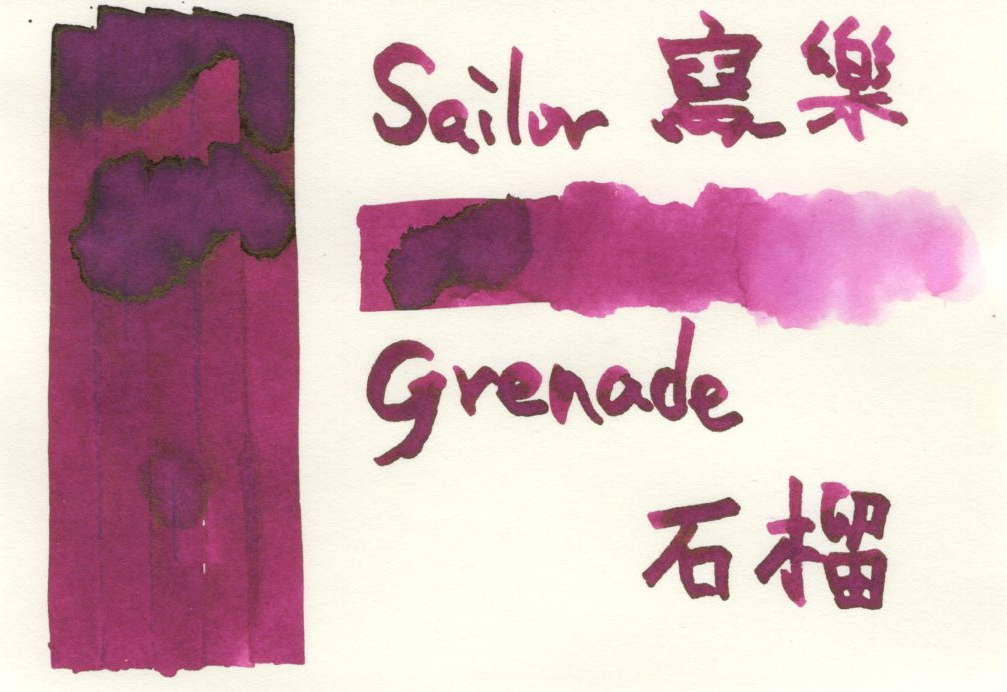 Sailor 寫樂
Grenade
石榴